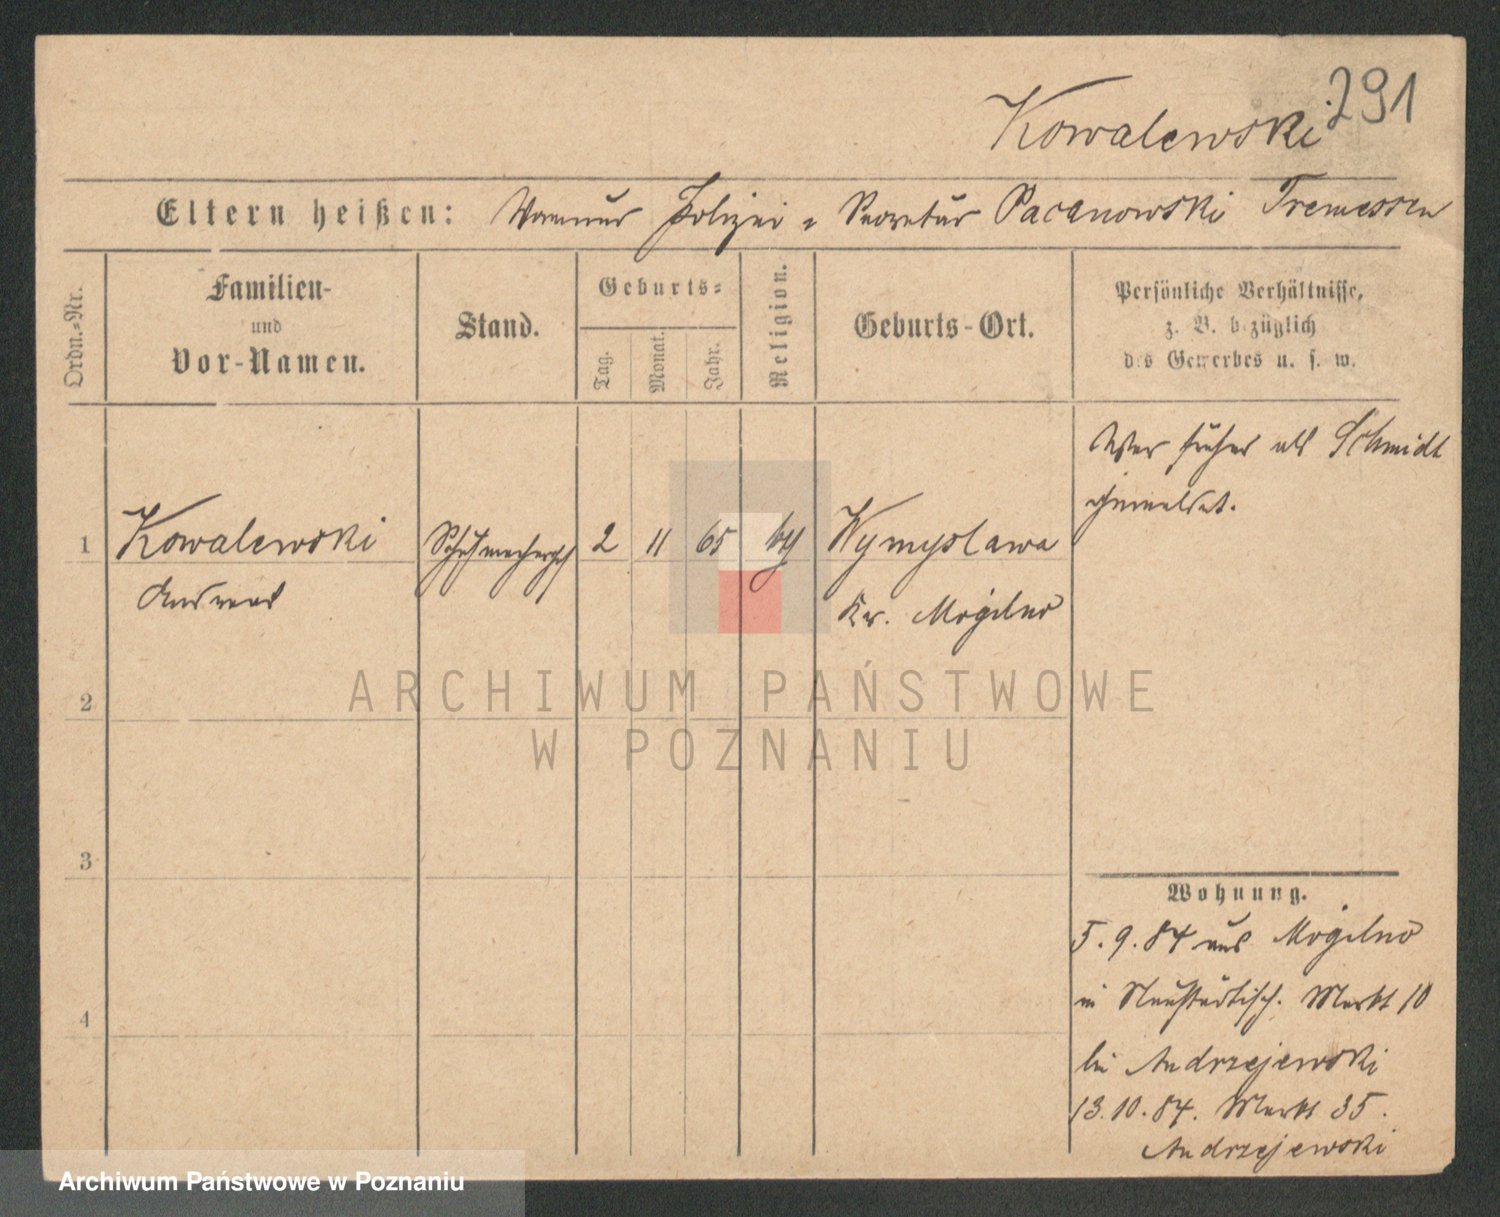 291
Kowalewski
Eltern heißen: Vormund Polizei - Secretär Pacanowski Tremessen
Ordn.-Nr.
Familien-
und
Vor-Namen.
Stand.
Geburts-
Tag.
Monat.
Jahr.
Religion.
Geburts-Ort.
Persönliche Verhältnisse,
z. B. bezüglich
des Gewerbes u. s. w.
War früher als Schmidt
gemeldet.
1 Kowalewski Schuhmacherges 2 11 65 kth Wymyslawa
Andreas Kr. Mogilno
2
3
4
Wohnung.
5.9.84 aus Mogilno
in Neustädtisch. Markt 10
bei Andrzejewski
13.10.84. Markt 35.
Andrzejewski
ARCHIWUM PAŃSTWOWE
W POZNANIU
Archiwum Państwowe w Poznaniu